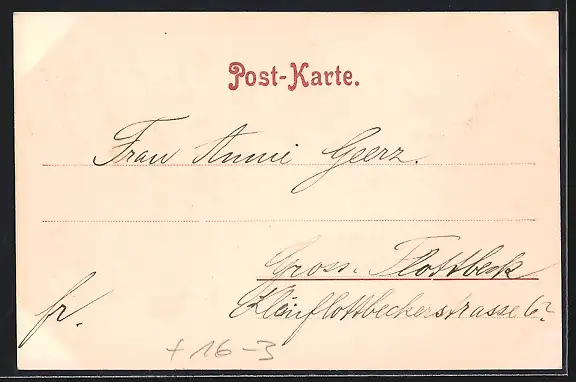 Post-Karte.
Frau Anni Geerz.
Gross-Flottbeck
Kleinflottbeckerstrasse 62
fr.
+ 16-3